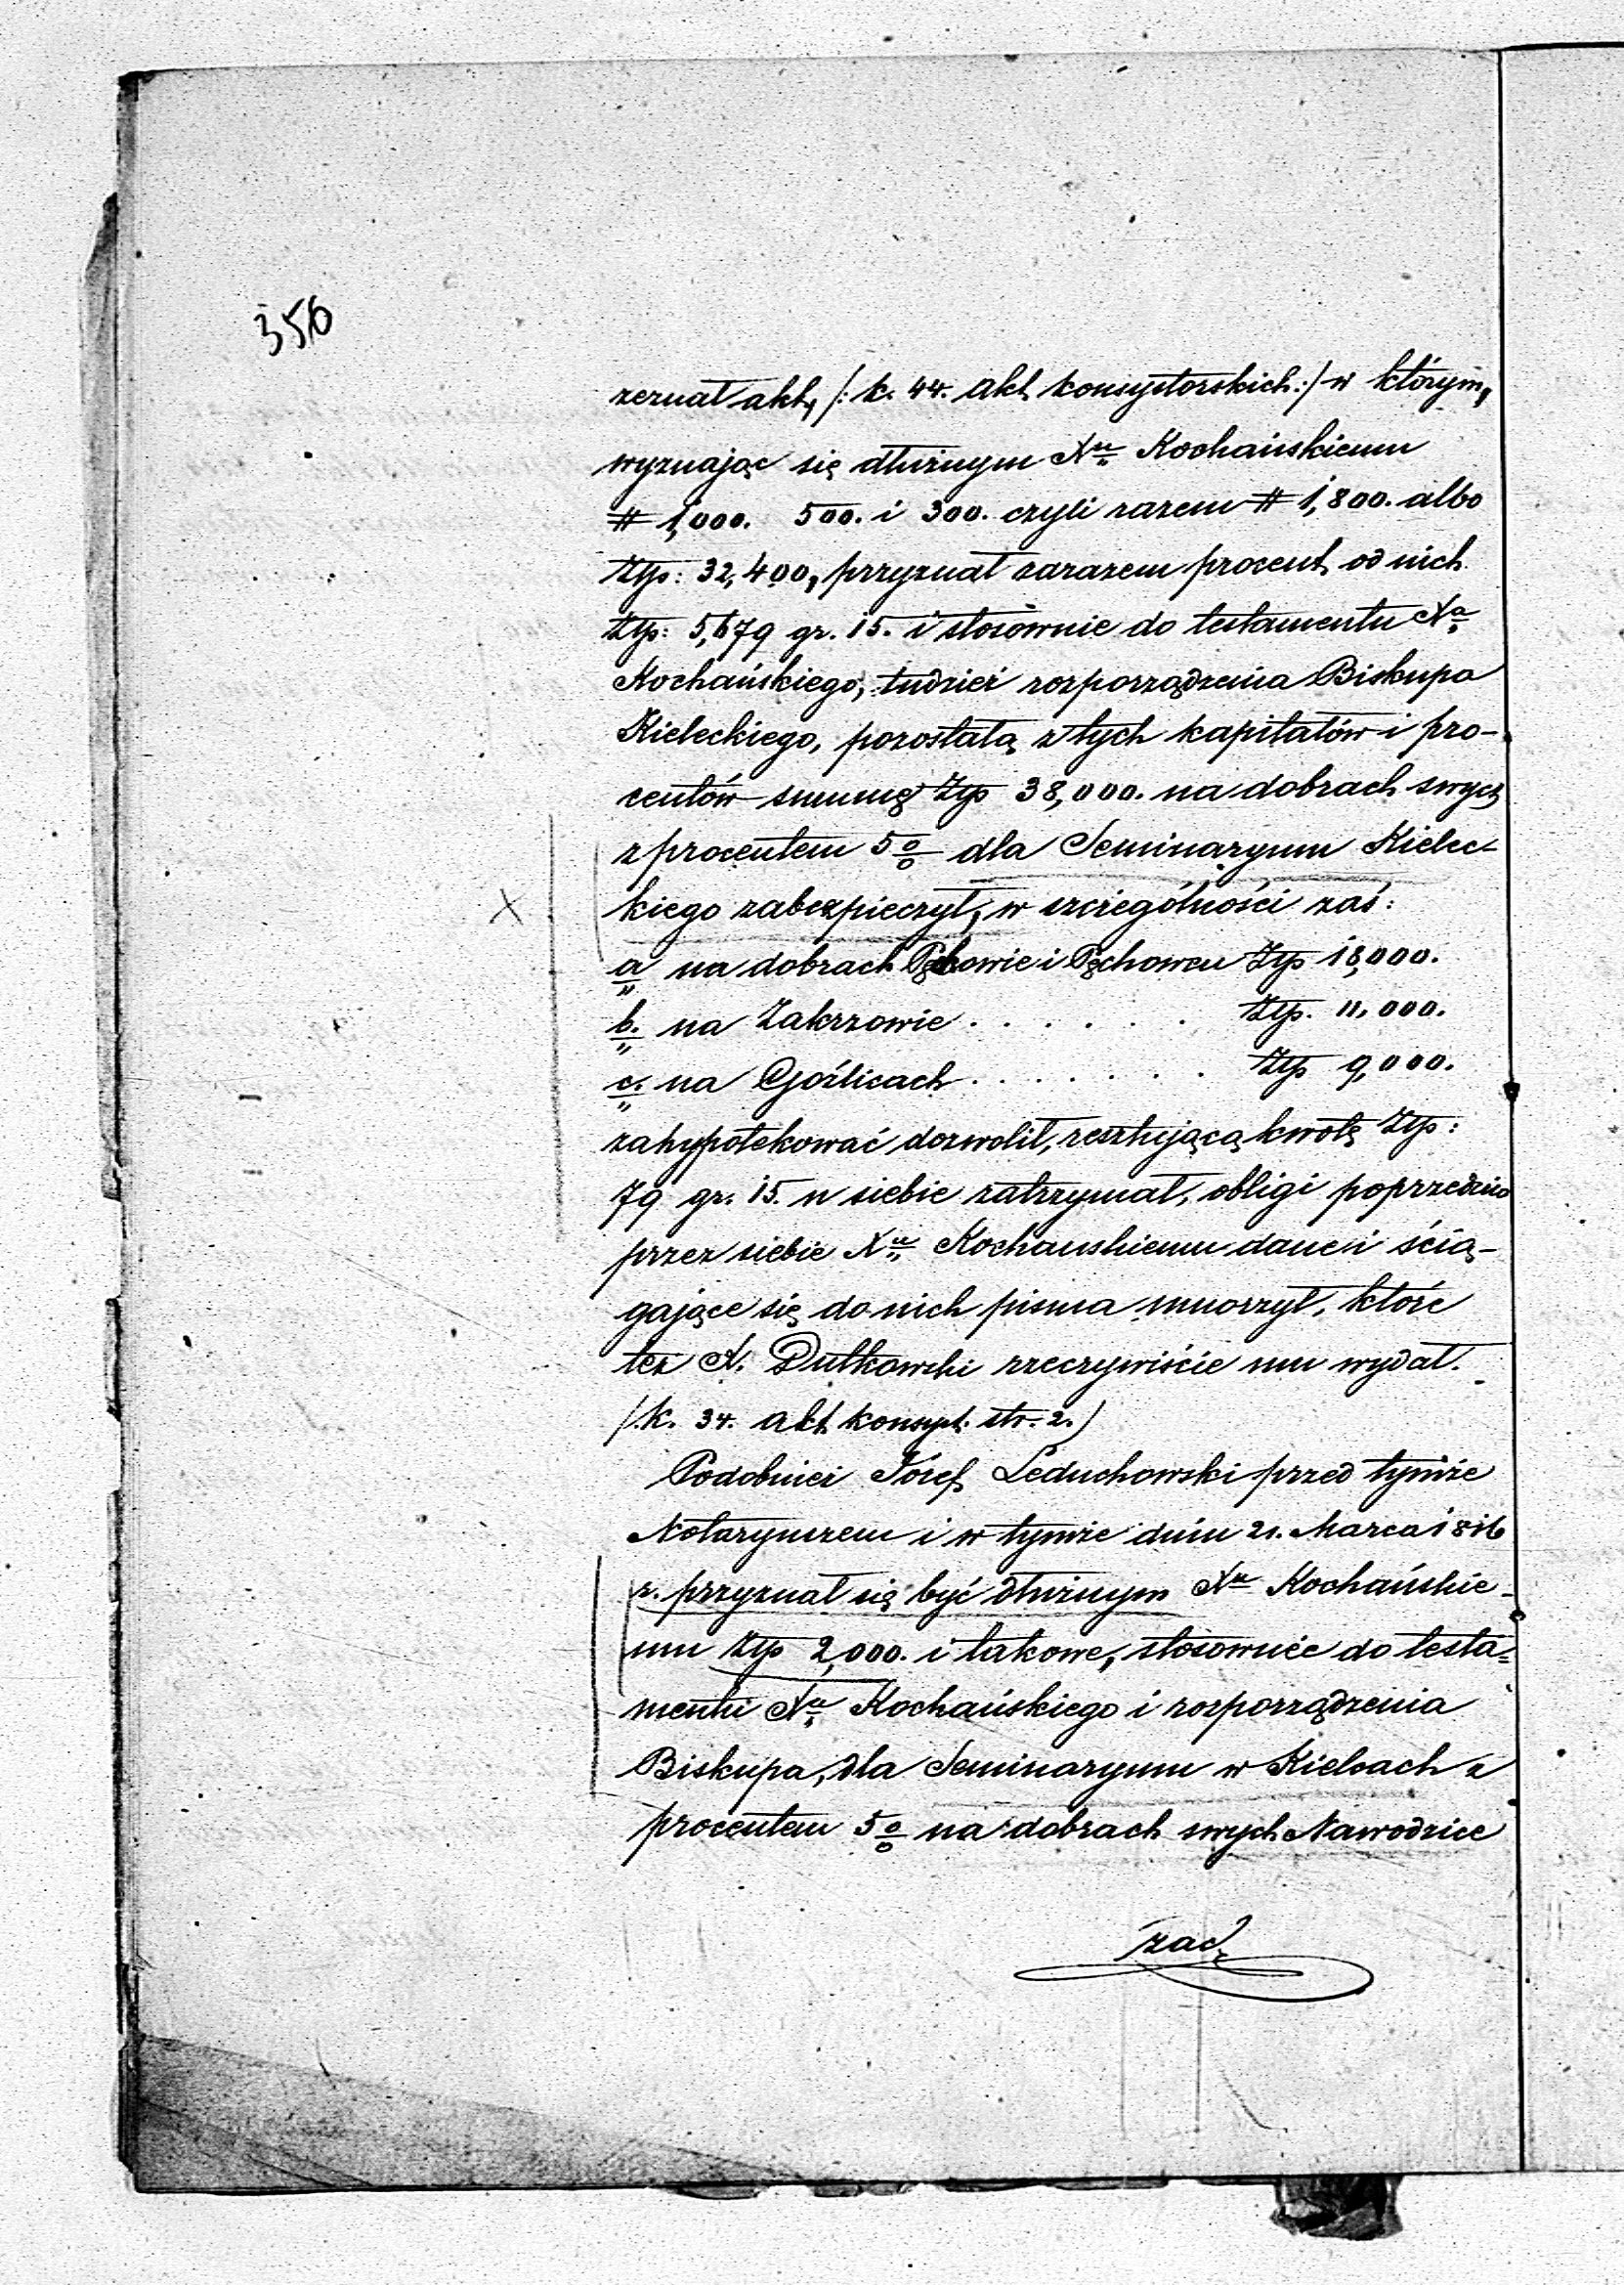 356
zeznał akt, /: k. 44. akt konsystorskich :/ w którym,
wyznając się dłużnym Xu Kochańskiemu
# 1,000. 500. i 300. czyli razem # 1,800. albo
Złp: 32,400, przyznał zarazem procent od nich
Złp: 5,679 gr. 15. i stosownie do testamentu Xa
Kochańskiego, tudzież rozporządzenia Biskupa
Kieleckiego, pozostałą z tych kapitałów i pro-
centów summę Złp 38,000. na dobrach swych
z procentem 5% dla Seminaryum Kielec-
kiego zabezpieczył, w szczególności zaś:
a na dobrach Pęchowie i Pęchowcu Złp 18,000.
b. na Zakrzowie . . . . . . Złp. 11,000.
c. na Goźlicach . . . . . . . Złp 9,000.
zahypotekować dozwolił, resztującą kwotę Złp:
79 gr. 15. u siebie zatrzymał, obligi poprzednio
przez siebie Xu Kochanskiemu dane i ścią-
gające się do nich pisma umorzył, które
też X. Dutkowski rzeczywiście mu wydał.
/k. 34. akt konsyst. str. 2./
Podobnież Józef Leduchowski przed tymże
Notaryuszem i w tymże dniu 21. Marca 1816
r. przyznał się być dłużnym Xu Kochańskie-
mu Złp 2,000. i takowe, stosownie do testa-
mentu Xa Kochańskiego i rozporządzenia
Biskupa, dla Seminaryum w Kielcach z
procentem 5% na dobrach swych Nawodzice